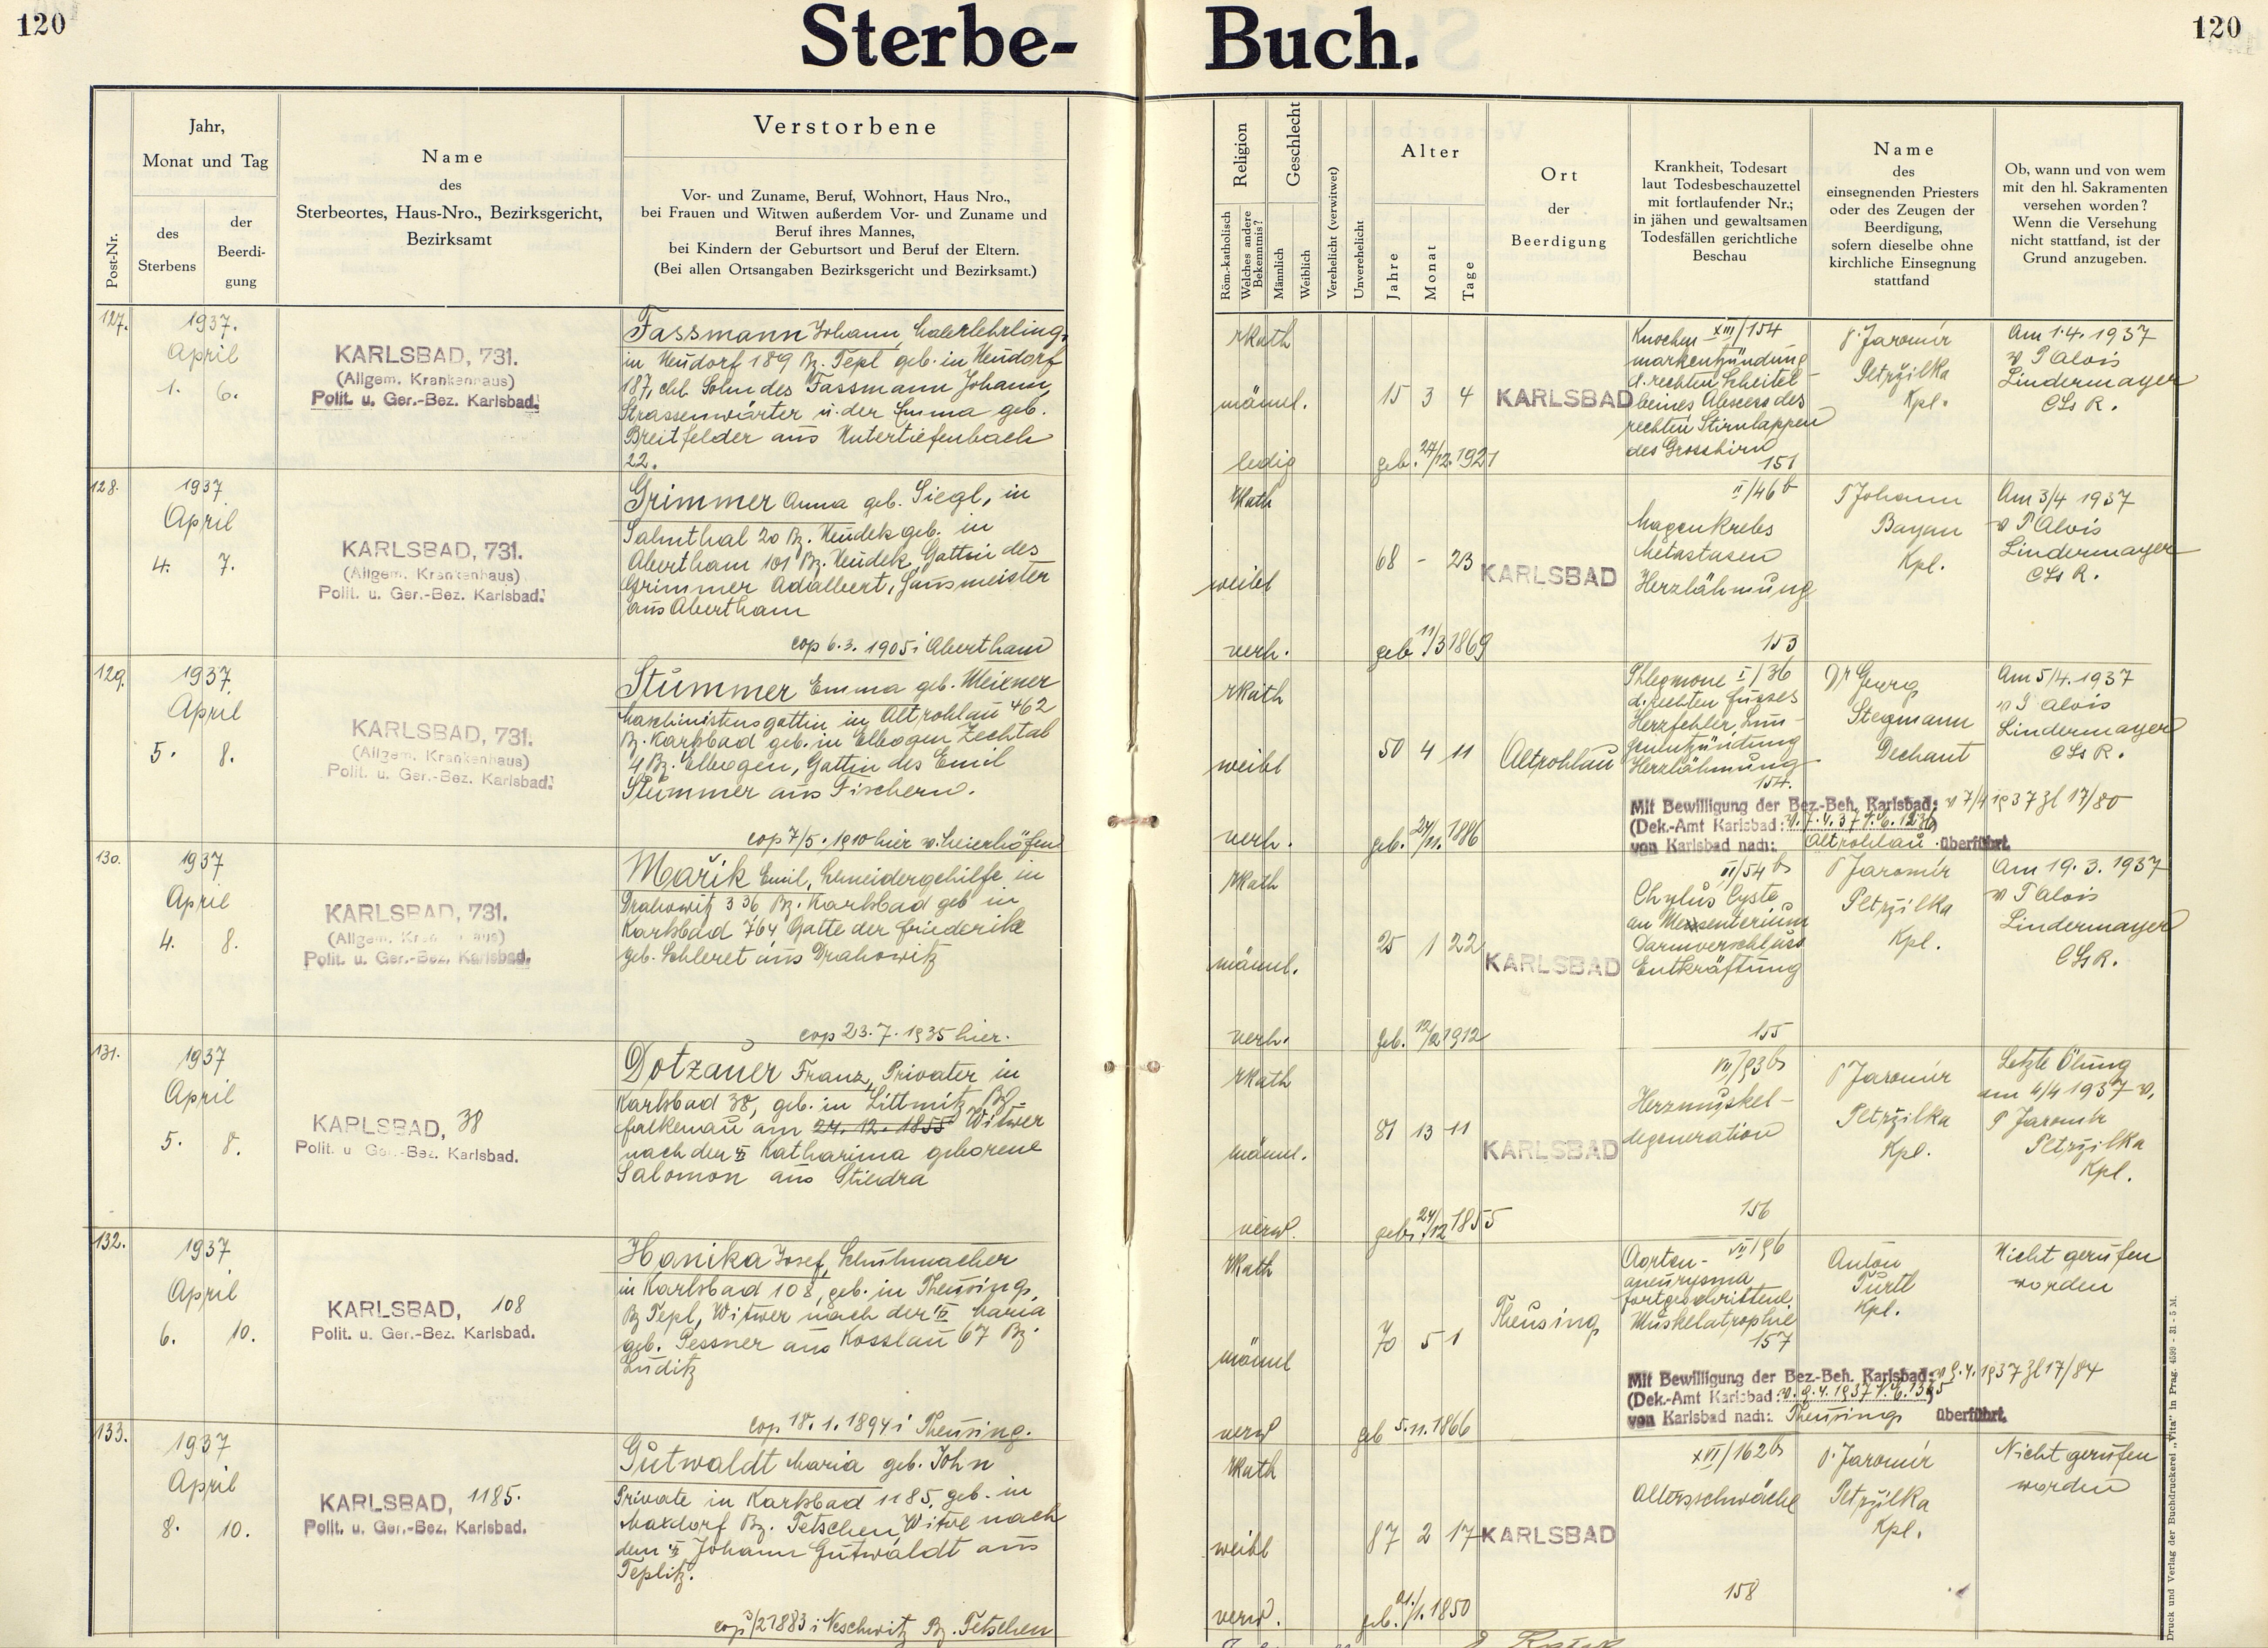 120
Sterbe-
Buch.
120
Post-Nr.
Jahr,
Monat und Tag
des
Sterbens
der
Beerdi-
gung
Name
des
Sterbeortes, Haus-Nro., Bezirksgericht,
Bezirksamt
Verstorbene
Vor- und Zuname, Beruf, Wohnort, Haus Nro.,
bei Frauen und Witwen außerdem Vor- und Zuname und
Beruf ihres Mannes,
bei Kindern der Geburtsort und Beruf der Eltern.
(Bei allen Ortsangaben Bezirksgericht und Bezirksamt.)
Religion
Röm.-katholisch
Welches andere
Bekenntnis?
Geschlecht
Männlich
Weiblich
Verehelicht (verwitwet)
Unverehelicht
Alter
Jahre
Monat
Tage
Ort
der
Beerdigung
Krankheit, Todesart
laut Todesbeschauzettel
mit fortlaufender Nr.;
in jähen und gewaltsamen
Todesfällen gerichtliche
Beschau
Name
des
einsegnenden Priesters
oder des Zeugen der
Beerdigung,
sofern dieselbe ohne
kirchliche Einsegnung
stattfand
Ob, wann und von wem
mit den hl. Sakramenten
versehen worden?
Wenn die Versehung
nicht stattfand, ist der
Grund anzugeben.
127.
1937.
April
1. 6.
KARLSBAD, 731.
(Allgem. Krankenhaus)
Polit. u. Ger.-Bez. Karlsbad.
Fassmann Johann, Malerlehrling,
in Neudorf 189 Bz. Tepl geb. in Neudorf
187, ehl. Sohn des Fassmann Johann,
Strassenwärter u. der Emma geb.
Breitfelder aus Untertiefenbach
22.
rkath
männl.
ledig
15 3 4
geb. 27/12.1921
KARLSBAD
Knochen XIII/154
markentzündung
d. rechten Scheitel-
beines Abscess des
rechten Stirnlappen
des Grosshirn
151
P. Jaromír
Petržilka
Kpl.
Am 1.4.1937
v P Alois
Lindermayer
CSsR.
128.
1937
April
4. 7.
KARLSBAD, 731.
(Allgem. Krankenhaus)
Polit. u. Ger.-Bez. Karlsbad.
Grimmer Anna geb. Siegl, in
Salmthal 20 Bz. Neudek geb. in
Abertham 101 Bz. Neudek, Gattin des
Grimmer Adalbert, Hausmeister
aus Abertham
cop 6.3.1905 i Abertham
rkath
weibl
verh.
68 - 23
geb 11/3 1869
KARLSBAD
II/46 b
Magenkrebs
Metastasen
Herzlähmung
153
P Johann
Bayan
Kpl.
Am 3/4 1937
v P Alois
Lindermayer
CSsR.
129.
1937.
April
5. 8.
KARLSBAD, 731.
(Allgem. Krankenhaus)
Polit. u. Ger.-Bez. Karlsbad.
Stummer Emma geb. Meixner
Maschinistensgattin in Altrohlau 462
Bz. Karlsbad geb. in Elbogen Zechtal
4 Bz. Elbogen, Gattin des Emil
Stummer aus Fischern.
cop 7/5.1910 hier v. Meierhöfen
rkath
weibl
verh.
50 4 11
geb. 24/11.1886
Altrohlau
Phlegmone I/36
d. rechten Fusses
Herzfehler, Lun-
genentzündung
Herzlähmung
154.
Dr Georg
Stegmann
Dechant
Am 5/4.1937
v P Alois
Lindermayer
CSsR.
Mit Bewilligung der Bez.-Beh. Karlsbad: v 7/4 1937 Zl 17/80
(Dek.-Amt Karlsbad: v. 7.4.37 N.E. 1236)
von Karlsbad nach: Altrohlau überführt.
130.
1937
April
4. 8.
KARLSBAD, 731.
(Allgem. Krankenhaus)
Polit. u. Ger.-Bez. Karlsbad.
Mařik Emil, Schneidergehilfe in
Drahowitz 336 Bz. Karlsbad geb in
Karlsbad 764 Gatte der Friederike
geb. Schleret aus Drahowitz
cop 23.7.1935 hier.
rkath
männl.
verh.
25 1 22
geb. 12/2 1912
KARLSBAD
VI/54 b
Chylus Cyste
an Mesenterium
Darmverschluss
Entkräftung
155
P Jaromír
Petržilka
Kpl.
Am 19.3.1937
v P Alois
Lindermayer
CSsR.
131.
1937
April
5. 8.
KARLSBAD, 38
Polit. u. Ger.-Bez. Karlsbad.
Dotzauer Franz, Privater in
Karlsbad 38, geb. in Littmitz Bz.
Falkenau am 24.12.1855 Witwer
nach der II Katharina geborene
Salomon aus Stiedra
rkath
männl.
verw.
81 13 11
geb. 24/12 1855
KARLSBAD
VII/93 b
Herzmuskel-
degeneration
156
P Jaromír
Petržilka
Kpl.
Letzte Ölung
am 4/4 1937 v.
P Jaromír
Petržilka
Kpl.
132.
1937
April
6. 10.
KARLSBAD, 108
Polit. u. Ger.-Bez. Karlsbad.
Hanika Josef, Schuhmacher
in Karlsbad 108, geb. in Theusing,
Bz Tepl, Witwer nach der II Maria
geb. Pessner aus Kosslau 67 Bz.
Luditz
cop 18.1.1894 i Theusing.
rkath
männl
verw
70 5 1
geb 5.11.1866
Theusing
Aorten- VII/96
aneurysma
fortgeschrittene
Muskelatrophie
157
Anton
Türtl
Kpl.
Nicht gerufen
worden
Mit Bewilligung der Bez.-Beh. Karlsbad: v 9.4.1937 Zl 17/84
(Dek.-Amt Karlsbad: v. 9.4.1937 N.E. 1305
von Karlsbad nach: Theusing überführt.
133.
1937
April
8. 10.
KARLSBAD, 1185.
Polit. u. Ger.-Bez. Karlsbad.
Gutwaldt Maria geb. John
Private in Karlsbad 1185, geb. in
Maxdorf Bz. Tetschen, Witwe nach
dem II Johann Gutwaldt aus
Teplitz.
cop 3/2 1883 i Neschwitz Bz. Tetschen
rkath
weibl
verw.
87 2 17
geb. 21./1.1850
KARLSBAD
XVII/162 b
Altersschwäche
158
P. Jaromír
Petržilka
Kpl.
Nicht gerufen
worden
Druck und Verlag der Buchdruckerei „Vita" in Prag. 4599 - 31 - 5 M.